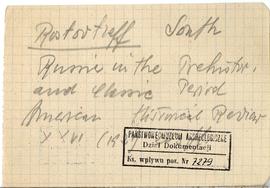 Rostovtzeff South
Russia in the Prehistor.
and Classic Period
American Historical Review
XXVI
PAŃSTWOWE MUZEUM ARCHEOLOGICZNE
Dział Dokumentacji
Ks. wpływu poz. Nr 7279